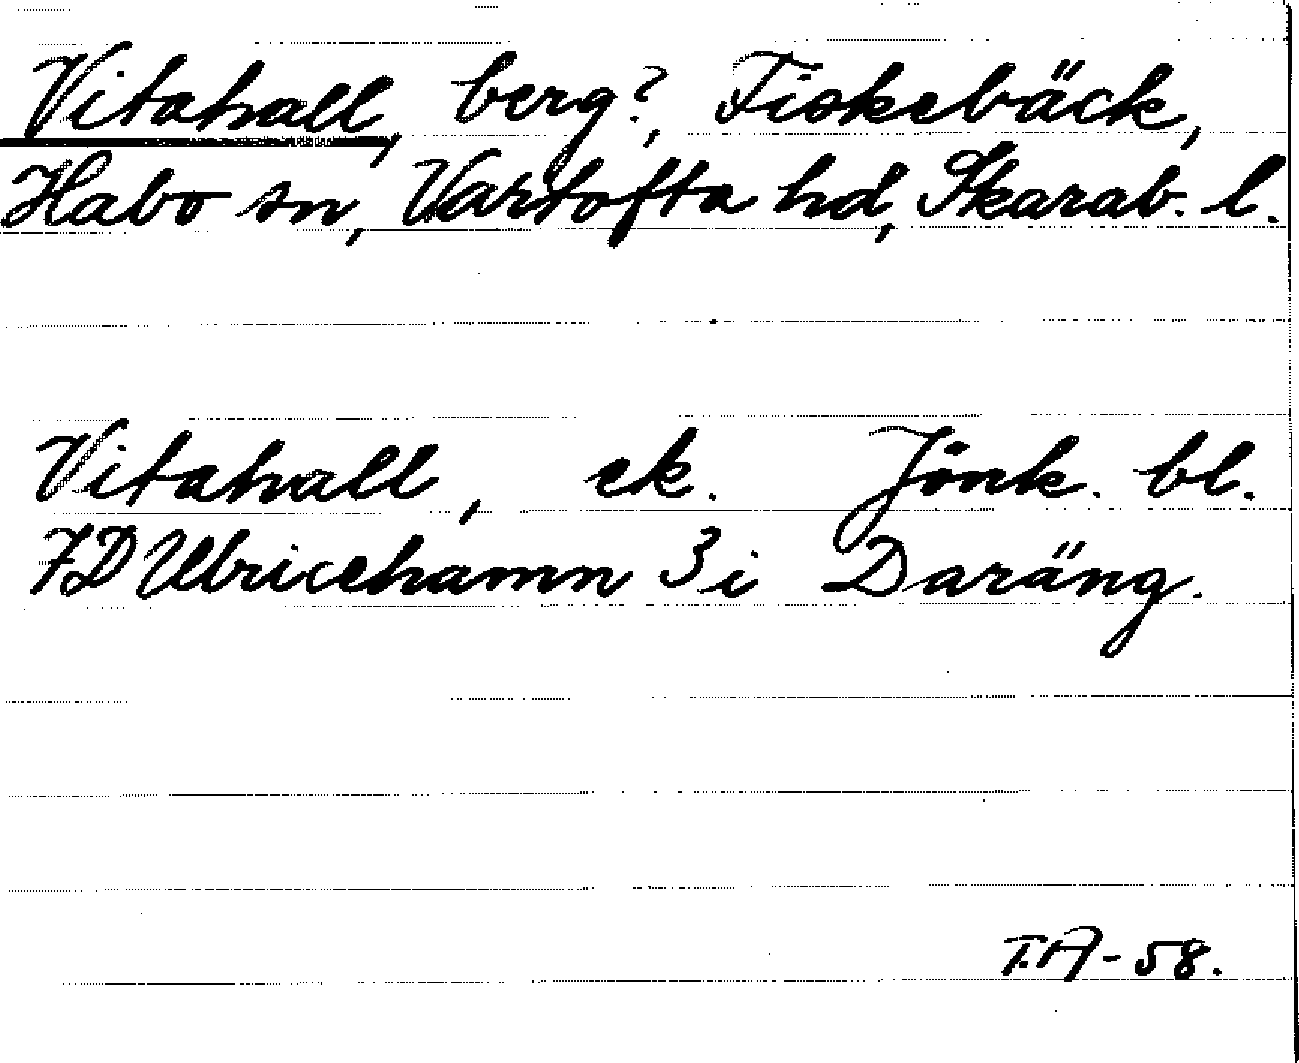 Vitahall, berg?, Fiskebäck,
Habo sn, Vartofta hd, Skarab. l.
Vitahall, ek. Jönk. bl.
7D Ulricehamn 3 i Daräng.
T.A-58.